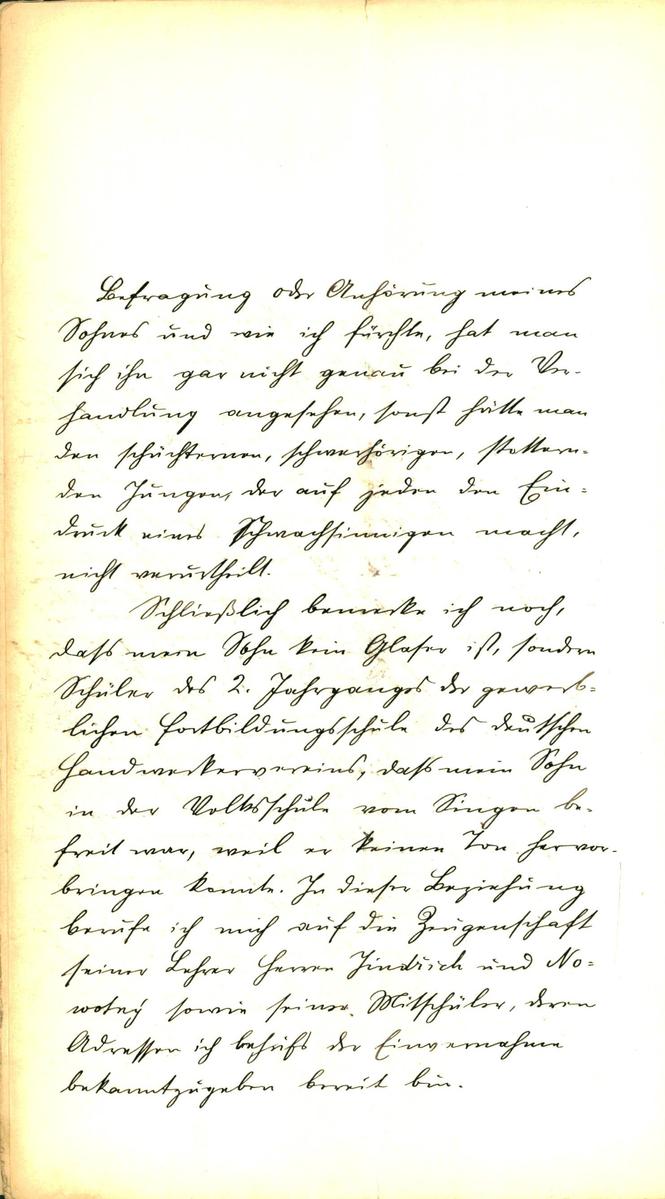 Befragung oder Anhörung meines
Sohnes und wie ich fürchte, hat man
sich ihn gar nicht genau bei der Ver-
handlung angesehen, sonst hätte man
den schüchternen, schwerhörigen, stottern-
den Jungen, der auf jeden den Ein-
druck eines Schwachsinnigen macht,
nicht verurtheilt.
Schließlich bemerke ich noch,
dass mein Sohn kein Glaser ist, sondern
Schüler des 2. Jahrganges der gewerb-
lichen Fortbildungsschule des deutschen
Handwerkervereins, dass mein Sohn
in der Volksschule vom Singen be-
freit war, weil er keinen Ton hervor-
bringen konnte. In dieser Beziehung
berufe ich mich auf die Zeugenschaft
seiner Lehrer Herren Jindrich und No-
wotny sowie seiner Mitschüler, deren
Adressen ich behufs der Einvernahme
bekanntzugeben bereit bin.